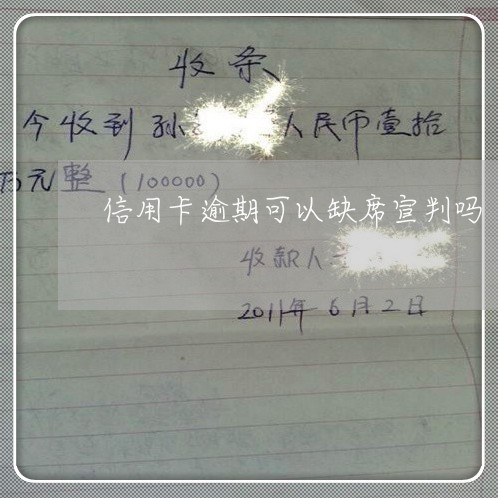 收条
今收到孙 人民币壹拾
万元整（100000）
信用卡逾期可以缺席宣判吗
收款人
2011年6月2日